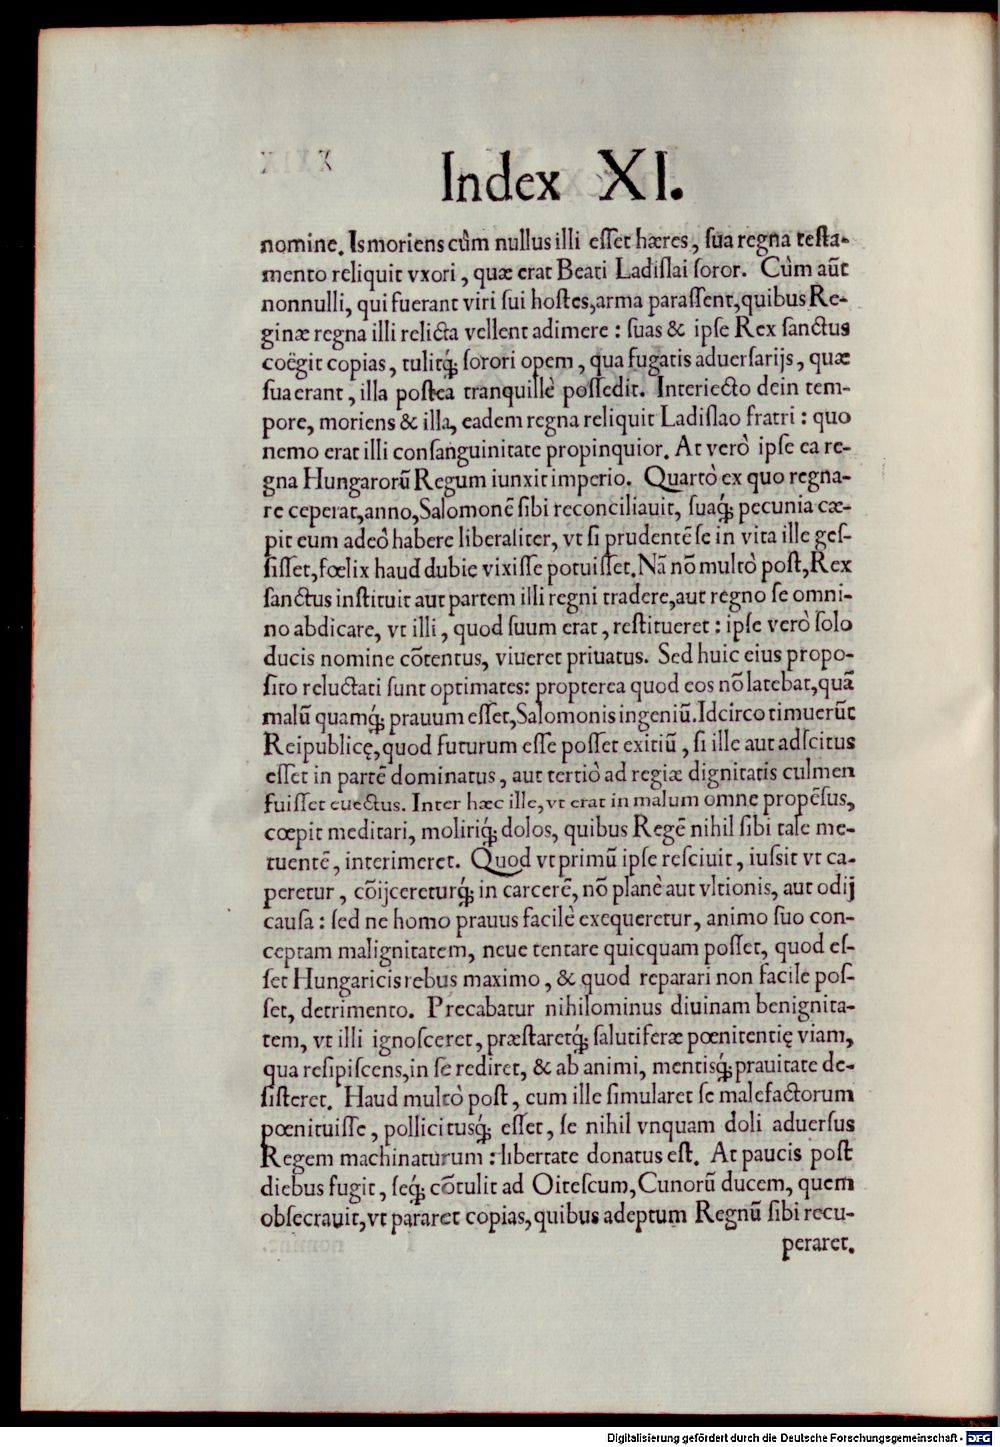 Index XI.
nomine. Is moriens cùm nullus illi esset hæres, sua regna testa-
mento reliquit vxori, quæ erat Beati Ladislai soror. Cùm aūt
nonnulli, qui fuerant viri sui hostes, arma parassent, quibus Re-
ginæ regna illi relicta vellent adimere: suas & ipse Rex sanctus
coëgit copias, tulitq́; sorori opem, qua fugatis aduersarijs, quæ
sua erant, illa postea tranquillè possedit. Interiecto dein tem-
pore, moriens & illa, eadem regna reliquit Ladislao fratri: quo
nemo erat illi consanguinitate propinquior. At verò ipse ea re-
gna Hungarorū Regum iunxit imperio. Quartò ex quo regna-
re ceperat, anno, Salomonē sibi reconciliauit, suaq́; pecunia cæ-
pit eum adeò habere liberaliter, vt si prudentē se in vita ille ges-
sisset, fœlix haud dubie vixisse potuisset. Nā nō multò post, Rex
sanctus instituit aut partem illi regni tradere, aut regno se omni-
no abdicare, vt illi, quod suum erat, restitueret: ipse verò solo
ducis nomine cōtentus, viueret priuatus. Sed huic eius propo-
sito reluctati sunt optimates: propterea quod eos nō latebat, quā
malū quamq́; prauum esset, Salomonis ingeniū. Idcirco timuerūt
Reipublicę, quod futurum esse posset exitiū, si ille aut adscitus
esset in partē dominatus, aut tertiò ad regiæ dignitatis culmen
fuisset euectus. Inter hæc ille, vt erat in malum omne propēsus,
cœpit meditari, moliriq́; dolos, quibus Regē nihil sibi tale me-
tuentē, interimeret. Quod vt primū ipse resciuit, iussit vt ca-
peretur, cōijcereturq́; in carcerē, nō planè aut vltionis, aut odij
causa: sed ne homo prauus facilè exequeretur, animo suo con-
ceptam malignitatem, neue tentare quicquam posset, quod es-
set Hungaricis rebus maximo, & quod reparari non facile pos-
set, detrimento. Precabatur nihilominus diuinam benignita-
tem, vt illi ignosceret, præstaretq́; salutiferæ pœnitentię viam,
qua resipiscens, in se rediret, & ab animi, mentisq́; prauitate de-
sisteret. Haud multò post, cum ille simularet se malefactorum
pœnituisse, pollicitusq́; esset, se nihil vnquam doli aduersus
Regem machinaturum: libertate donatus est. At paucis post
diebus fugit, seq́; cōtulit ad Oitescum, Cunorū ducem, quem
obsecrauit, vt pararet copias, quibus adeptum Regnū sibi recu-
peraret.
Digitalisierung gefördert durch die Deutsche Forschungsgemeinschaft - DFG